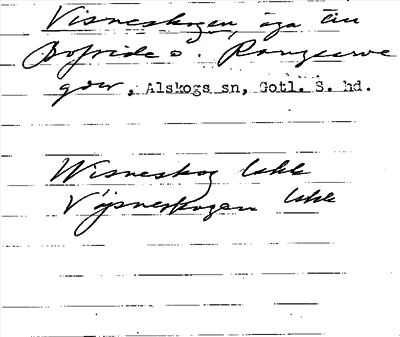 Visneskogen, äga till
Bofride o. Rangsarve
gdr, Alskogs sn, Gotl. S. hd.
Wisneskog lskk
Vijsneskogen lskk